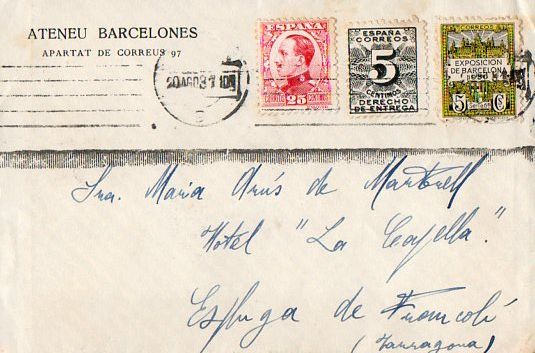 ATENEU BARCELONES
APARTAT DE CORREUS 97
20 AGO 31
25
ESPAÑA
CORREOS
5
CENTIMOS
DERECHO
DE ENTREGA
EXPOSICION
DE BARCELONA
1930
5 Cs
Sra. Maria Arús de Martorell
Hotel "La Capella."
Espluga de Francolí
(Tarragona)